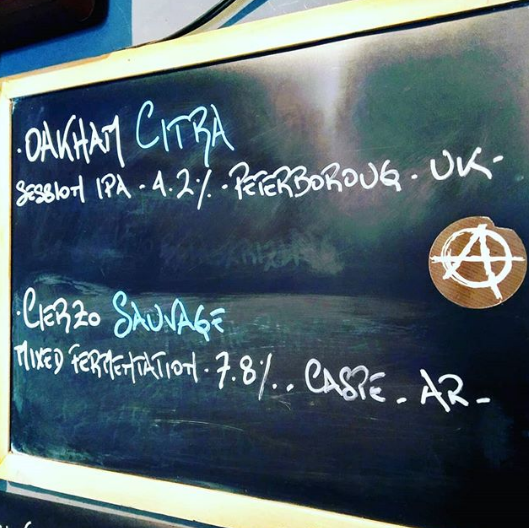 · OAKHAM CITRA
SESSION IPA · 4.2% · PETERBOROUG · UK -
· CIERZO SAUVAGE
MIXED FERMENTATION · 7.8% . CASPE - AR -